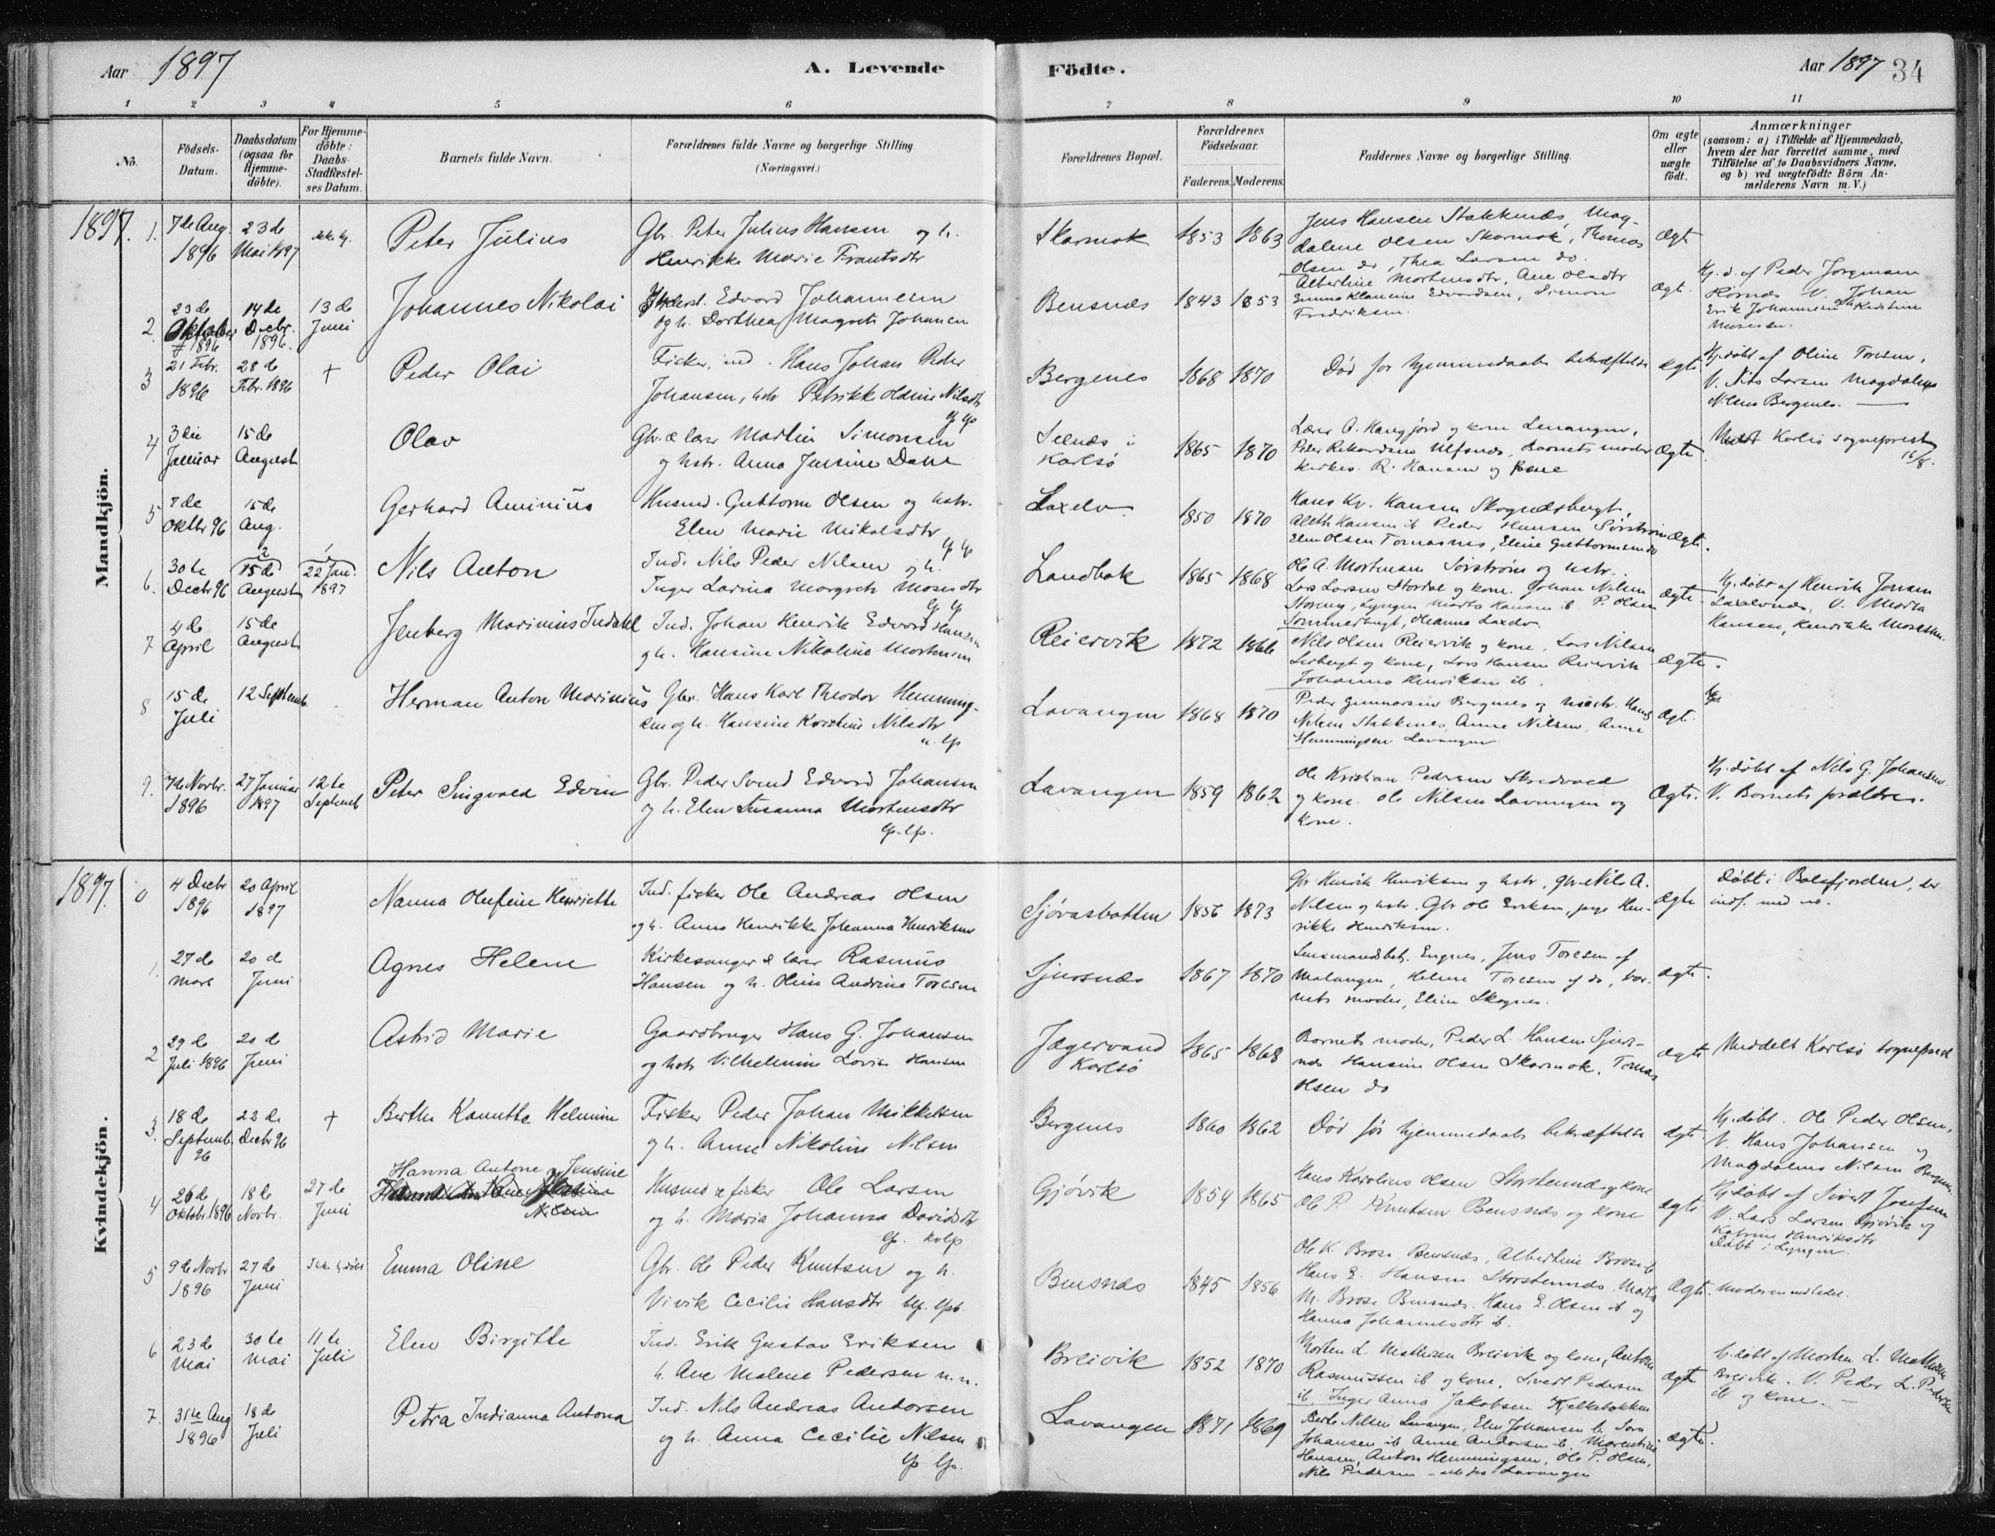 Aar 1897
A. Levende
Födte.
Aar 1897 34
1 2 3 4 5 6 7 8 9 10 11
No.
Födsels-
Datum.
Daabsdatum
(ogsaa for
Hjemme-
döbte).
For Hjemme-
döbte:
Daabs-
Stadfæstel-
ses Datum.
Barnets fulde Navn.
Forældrenes fulde Navne og borgerlige Stilling
(Næringsvei.)
Forældrenes Bopæl.
Forældrenes
Födselsaar.
Faderens. Moderens.
Faddernes Navne og borgerlige Stilling.
Om ægte
eller
uægte
födt.
Anmærkninger
(saasom: a) i Tilfælde af Hjemmedaab,
hvem der har forrettet samme, med
Tilföielse af to Daabsvidners Navne,
og b) ved uægtefödte Börn An-
melderens Navn m. V.)
Mandkjön.
1897. 1. 7de Aug.
1896
23de
Mai 1897
Peter Julius
Gbr. Peter Julius Hansen og h.
Henrikke Marie Frantsdtr
Skarmok 1853 1863
Jens Hansen Stakkenæs, Mag-
dalene Olsen Skarmok, Thomas
Olsen do, Thea Larsen do.
Ægt
2. 23de
Oktober
1896
14de
Decbr.
1896.
13de
Juni
Johannes Nikolai
Edvard Johannesen
og h. Dorthea Margrete Johansen
Bensnæs 1843 1853
Albertine Mortensdtr, Ane Olsdtr
Emma Klausine Edvardsen, Simon
Fredriksen.
Ægt.
Hj. d. af Peder Jörgensen
V. Johan
Erik Johannesen Kristine
3 21 Febr.
1896
28de
Febr. 1896
+
Peder Olai
Fisker, ind. Hans Johan Peder
Johansen, hstr Petrikke Oldine Nilsdtr
Bergenes 1868 1870
Död før hjemmedaabs bekræftelse
ægte
Hj. døbt af Oline Toresen,
V. Nils Larsen Magdalena
Nilsen Bergenes.
4 3die
Januar
15de
August
Olav
Gbr. & lærer Martin Simonsen
og hstr. Anna Jensine Dahl
i
Karlsø
1865 1870
Lærer A. Haugfjord og kone Lenangen,
Peder Rikardsen Ulfsnæs, Barnets moder
Kirkes. R. Hansen og kone
Ægte
Karlsø sogneprest
16/8.
5 7de
Oktbr 96
15de
Aug.
Gerhard Aminius
Husmd. Guttorm Olsen og hstr.
Elen Marie Mikalsdtr
Laxelv 1850 1870
Hans Kr. Hansen Skognæsbergt,
Hansen ib Peder Hansen Sörström
Elen Olsen Tomasnes, Eline Guttormsen do
Ægte.
6. 30te
Decbr 96
15de
August
22 Jan.
1897
Nils Anton
Ind. Nils Peder Nilsen og h.
Inger Larina Margrete Mosesdtr
Landbak 1865 1868
Ole A. Mortensen Sörström og hstr.
Lars Larsen Stordal og kone. Johan Nilsen
Ægte.
Hj. døbt af Henrik Jensen
Laxelvnes, V. Marta
Hansen, Henrikke Mosesen.
7 4de
April
15de
August
Jenberg Marinius Indahl
Ind. Johan Henrik Edvard Hansen
og h. Hansine Nikoline Mortensen
Reiervik 1872 1866
Nils Olsen Reiervik og kone, Lars Nilsen
og kone, Lars Hansen Reiervik
Johanna Henriksen ib.
Ægte.
8 15de
Juli
12 Septemb
Herman Anton Marinius
Gbr. Hans Karl Theodor Hemming-
sen og h. Hansine Karoline Nilsdtr
Lavangen 1868 1870
Peder Gunnarsen Bergenes og hustr. Hans
Nilsen Stakkenes, Anne Nilsen, Anne
Hemmingsen Lavangen
Ægt.
9. 7de Novbr.
1896
27 Januar
1897
12te
Septemb
Peter Singvald Edvin
Gbr. Peder Svend Edvard Johansen
og h. Elen Susanna Mortensdtr
Lavangen 1859 1862
Ole Kristian Pedersen Skredsved
og kone. Ole Nilsen Lavangen og
kone.
Ægte.
Hj. döbt af Nils G. Johansen
V. Barnets forældre.
Kvindekjön.
1897. 0 4 Decbr
1896
20 April
1897
Nanna Olufine Henriette
Ind. fisker Ole Andreas Olsen
og h. Anna Henrikke Johanna Henriksen
Sjövasbotten 1856 1873
Gbr Henrik Henriksen og hstr, gbr Nils A.
Nilsen og hstr. Gbr Ole Eriksen, pige Hen-
rikke Henriksen.
Ægte
Døbt i Balsfjorden, er
indf. med no.
1. 27de
Mars
20de
Juni
Agnes Helene
Kirkesanger & lærer Rasmus
Hansen og h. Oline Andrine Toresen
Sjursnæs 1867 1870
Lensmandsbetj. Engnes, Jens Toresen af
Malangen, Helene Toresen af do, bar-
nets moder, Elien Skognes.
Ægte.
2 29de
Juli 1896
20de
Juni
Astrid Marie
Gaardbruger Hans G. Johansen
og hstr Vilhelmine Lovise Hansen
Jægervand
Karlsö
1865 1868
Barnets moder, Peder L. Hansen Sjurs-
næs Hansine Olsen Skarmok, Tomas
Olsen do
Ægte
Meddelt Karlsö sogneprest
3. 18de
Septemb.
96
22de
Decbr 96
+
Berthe Kanutte Helmine
Fisker Peder Johan Mikkelsen
og h. Anne Nikoline Nilsen
Bergenes 1860 1862
Död før hjemmedaabs bekræftelse
Ægte.
Hj. døbt. Ole Peder Olsen,
V. Hans Johansen og
Magdalena Nilsen Bergenes.
4 26de
Oktobr. 1896
18de
Novbr.
27de
Juni
Hanna Antone Jensine
Nilsen
Husmd & fisker Ole Larsen
og h. Maria Johanna Davidsdtr
Gjövik 1854 1865
Hans Karolius Olsen Storstennæs og kone
Ole P. Knutsen Bensnæs og kone
Ægte.
Hj. døbt af Sivert Josefsen
V. Lars Larsen Gjövik og
Katrine Henriksdtr
Døbt i Lyngen
5 9de Novbr
1896
27de
Juni
Emma Oline
Gbr. Ole Peder Knutsen og h.
Vivik Cecilie Hansdtr
Bensnæs 1845 1856
Ole K. Brose Bensnæs, Albertine Brose ib
Hans E. Hansen Storstennæs, Marta
M. Brose Bensnæs. Hans E. Olsen ib og
Hanna Johannesdtr ib.
Ægte.
6 23de
Mai
30te
Mai
11te
Juli
Elen Birgitte
Ind. Erik Gustav Eriksen
h. Ane Malene Pedersen
Breivik 1852 1870
Morten L. Mathisen Breivik og kone, Anton
Rasmussen ib og kone, Sivert Pedersen
ib Inger Anna Jakobsen Kjelkebakken
Ægte
Hj. döbt af Morten L. Mathisen
Breivik. V. Peder L. Pedersen
ib og kone.
7. 31te Aug
1896
18de
Juli
Petra Indianna Antona
Ind. Nils Andreas Andersen
og h. Anna Cecilie Nilsen
Lavangen 1871 1869
Berte Nilsen Lavangen, Elen Johansen ib, Lars
Johansen ib Anne Andersen ib, Marentius
Hansen, Anton Hemmingsen, Ole P. Olsen,
Nils Pedersen Lavangen
Ægte.